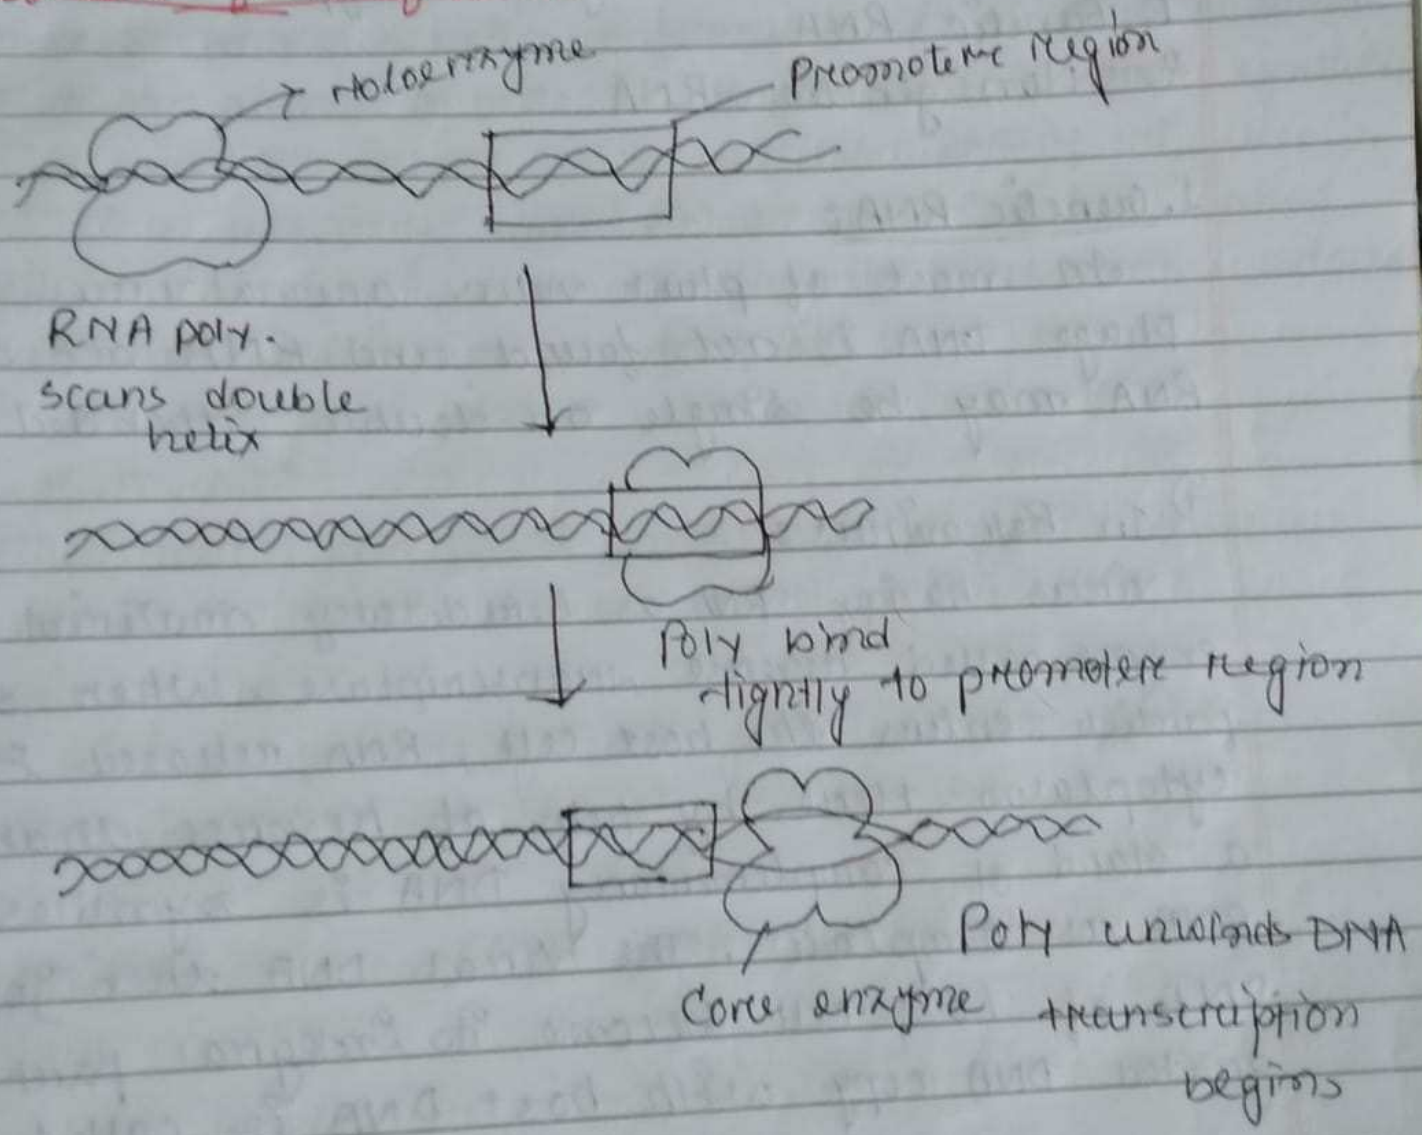 Holoenzyme
Promoter region
RNA poly.
scans double
helix
Poly bind
tightly to promoter region
Poly unwinds DNA
Core enzyme transcription
begins